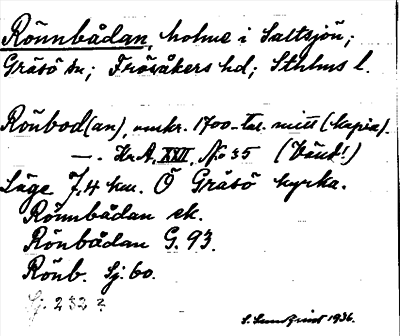 Rönnbådan, holme i Saltsjön;
Gräsö sn; Frösåkers hd; Sthlms l.
Rönbod(an), omkr. 1700-tal. mitt (kopia).
—. Kr. A, XXII, No 35 (Vänd!)
Läge 7,4 km. Ö Gräsö kyrka.
Rönnbådan ek.
Rönbådan G. 93.
Rönb. Sj. 60.
Sj. 232?
1936.